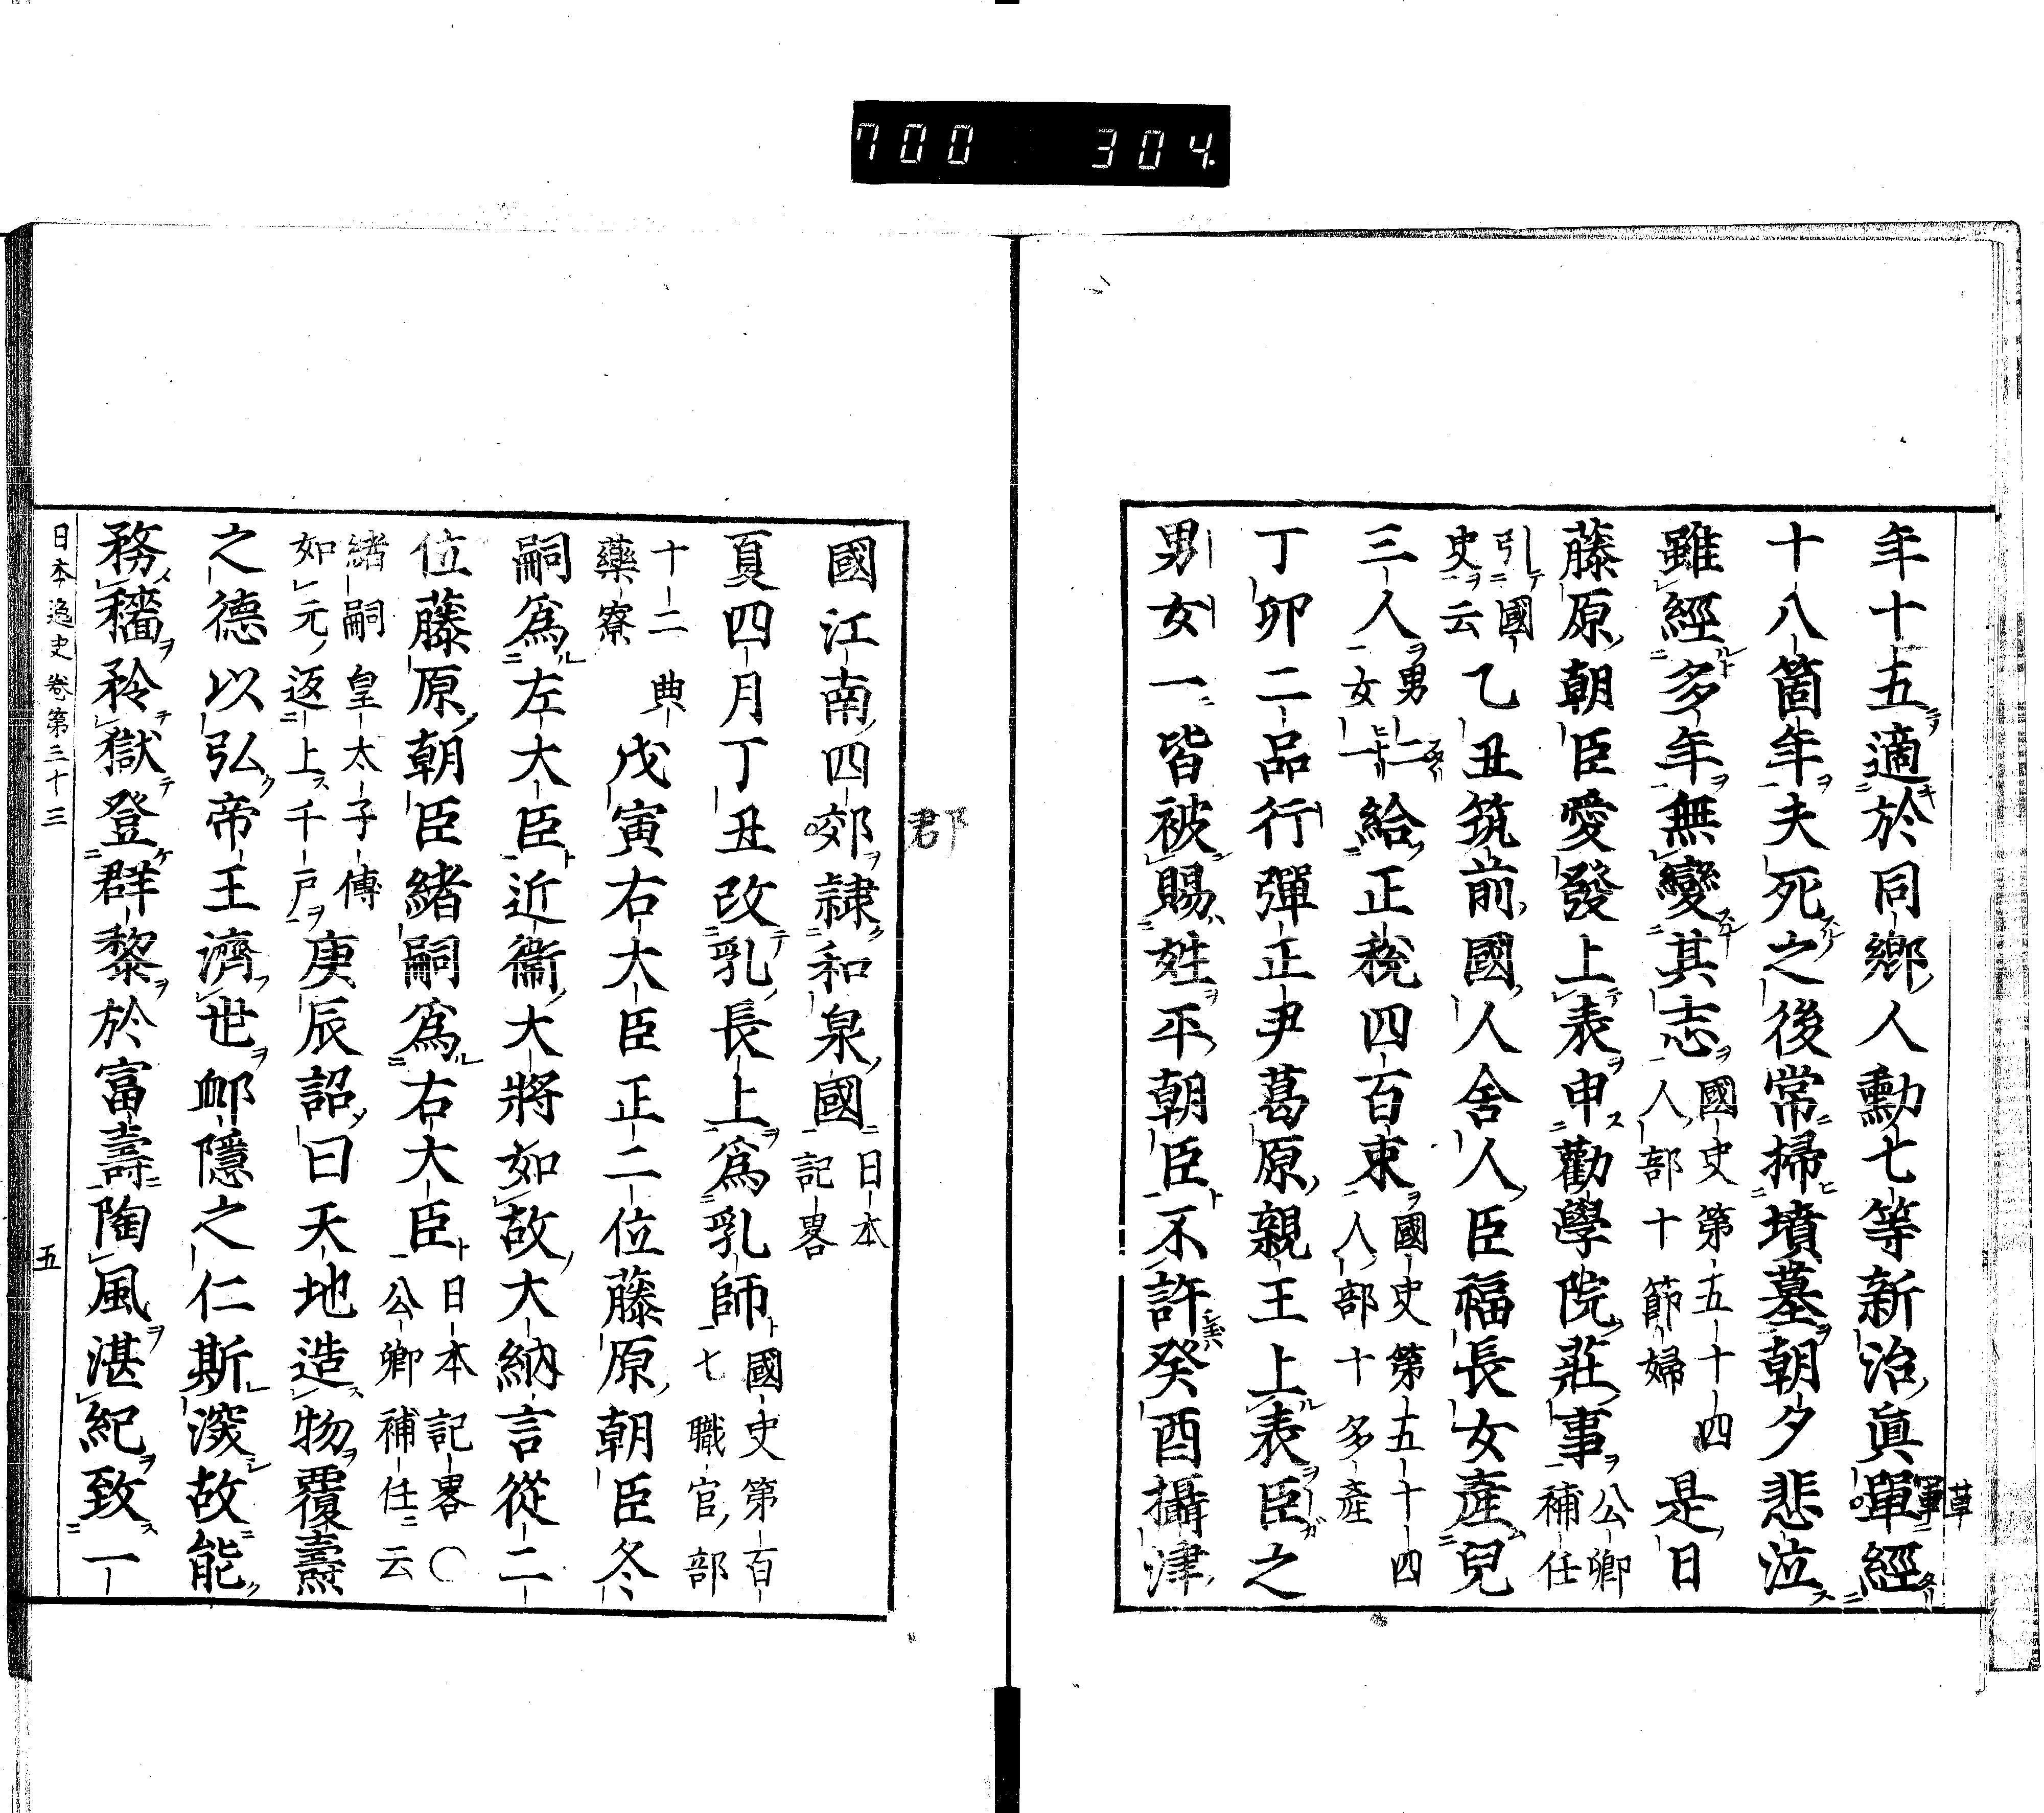 700 304
年十五適於同鄉人勳七等新治眞單經
十八箇年夫死之後常掃墳墓朝夕悲泣
雖經多年無變其志國史第五十四人部十節婦 是日
藤原朝臣愛發上表申勸學院莊事公卿補任
引國史云 乙丑筑前國人舍人臣福長女產兒
三人男二女一給正稅四百束國史第五十四人部十多產
丁卯二品行彈正尹葛原親王上表臣之
男女一皆被賜姓平朝臣不許癸酉攝津
國江南四郊隷和泉國日本記畧
夏四月丁丑改乳長上爲乳師國史第百七職官部
十二典藥寮 戊寅右大臣正二位藤原朝臣冬
嗣爲左大臣近衞大將如故大納言從二
位藤原朝臣緒嗣爲右大臣日本記畧〇公卿補任云
緒嗣皇太子傅如元返上千戶 庚辰詔曰天地造物覆燾
之德以弘帝王濟世卹隱之仁斯深故能
務穡矜獄登群黎於富壽陶風湛紀致一
日本逸史卷第三十三 五
郡